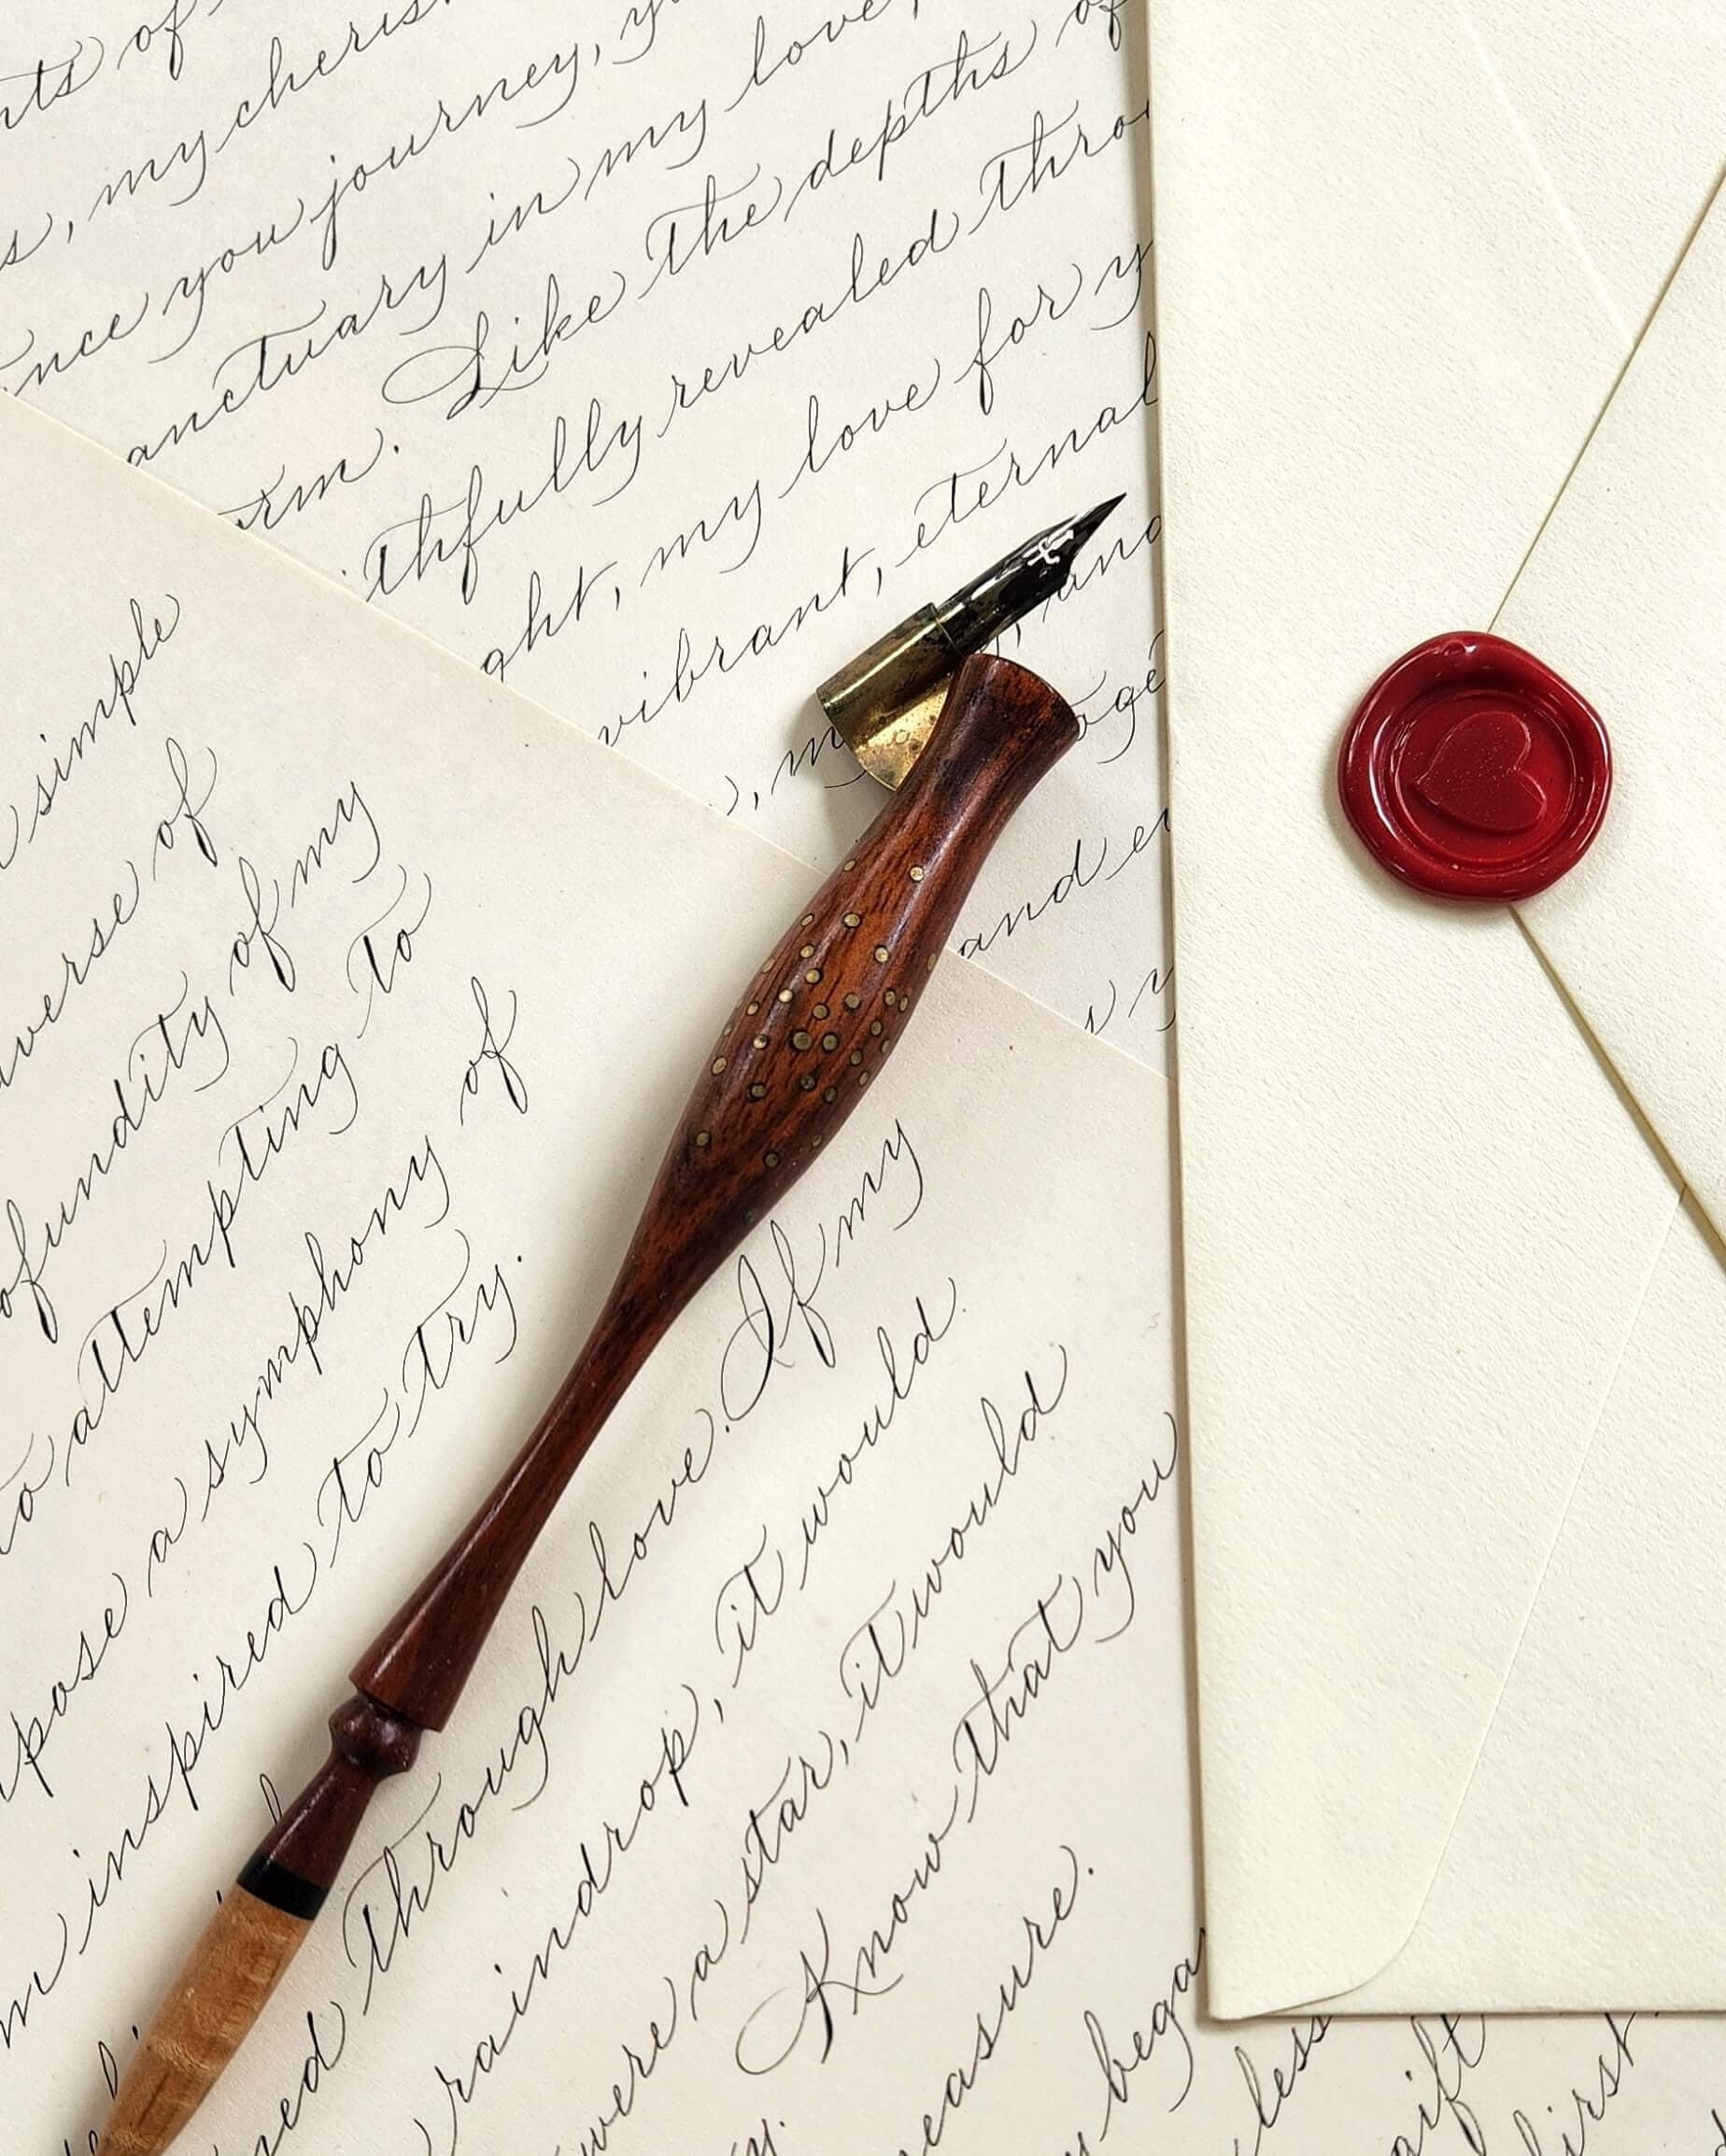 of
, my cheris
nce you journey, y
anctuary in my love,
rm. Like the depths of
thfully revealed thro
ght, my love for y
vibrant, eternal
, and
, m toge
and e
simple
verse of
ofundity of my
to attempting to
pose a symphony of
inspired to try.
through love. If my
raindrop, it would
were a star, it would
Know that you
easure.
y began
less
gift
first